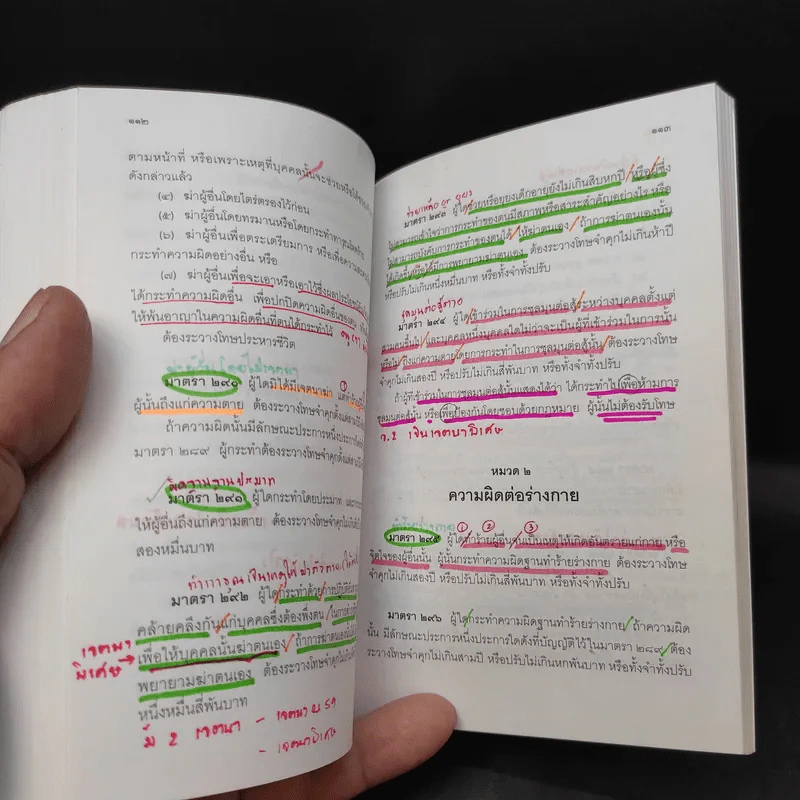 ๑๑๒
ตามหน้าที่ หรือเพราะเหตุที่บุคคลนั้นจะช่วยหรือได้ช่วย
ดังกล่าวแล้ว
(๔) ฆ่าผู้อื่นโดยไตร่ตรองไว้ก่อน
(๕) ฆ่าผู้อื่นโดยทรมานหรือโดยกระทำทารุณโหดร้าย
(๖) ฆ่าผู้อื่นเพื่อตระเตรียมการ หรือเพื่อความสะดวก
กระทำความผิดอย่างอื่น หรือ
(๗) ฆ่าผู้อื่นเพื่อจะเอาหรือเอาไว้ซึ่งผลประโยชน์
ได้กระทำความผิดอื่น เพื่อปกปิดความผิดอื่นของตน
ให้พ้นอาญาในความผิดอื่นที่ตนได้กระทำไว้
ต้องระวางโทษประหารชีวิต
ฆ่าผู้อื่นโดยไม่เจตนา
มาตรา ๒๙๐ ผู้ใดมิได้มีเจตนาฆ่า
ผู้นั้นถึงแก่ความตาย ต้องระวางโทษจำคุกตั้งแต่สามปี
ถ้าความผิดนั้นมีลักษณะประการหนึ่งประการใด
มาตรา ๒๘๙ ผู้กระทำต้องระวางโทษจำคุกตั้งแต่
ผิดฐานประมาท
มาตรา ๒๙๑ ผู้ใดกระทำโดยประมาท และการ
ให้ผู้อื่นถึงแก่ความตาย ต้องระวางโทษจำคุกไม่เกิน
สองหมื่นบาท
มาตรา ๒๙๒ ผู้ใดกระทำด้วยการปฏิบัติ
คล้ายคลึงกันแก่บุคคลซึ่งต้องพึ่งตน
เจตนาพิเศษ → เพื่อให้บุคคลนั้นฆ่าตนเอง ถ้าการฆ่าตนเองนั้น
พยายามฆ่าตนเอง ต้องระวางโทษจำคุกไม่เกิน
หนึ่งหมื่นสี่พันบาท
มี 2 เจตนา - เจตนา
- เจตนาพิเศษ
๑๑๓
มาตรา ๒๙๓ ผู้ใดช่วยหรือยุยงเด็กอายุยังไม่เกินสิบหกปี หรือผู้ซึ่ง
ไม่สามารถเข้าใจว่าการกระทำของตนมีสภาพหรือสาระสำคัญอย่างไร หรือ
ไม่สามารถบังคับการกระทำของตนได้ ให้ฆ่าตนเอง ถ้าการฆ่าตนเองนั้น
ได้เกิดขึ้นหรือได้มีการพยายามฆ่าตนเอง ต้องระวางโทษจำคุกไม่เกินห้าปี
หรือปรับไม่เกินหนึ่งหมื่นบาท หรือทั้งจำทั้งปรับ
ชุลมุนต่อสู้ตาย
มาตรา ๒๙๔ ผู้ใดเข้าร่วมในการชุลมุนต่อสู้ระหว่างบุคคลตั้งแต่
สามคนขึ้นไป และบุคคลหนึ่งบุคคลใดไม่ว่าจะเป็นผู้ที่เข้าร่วมในการนั้น
หรือไม่ ถึงแก่ความตายโดยการกระทำในการชุลมุนต่อสู้นั้น ต้องระวางโทษ
จำคุกไม่เกินสองปี หรือปรับไม่เกินสี่พันบาท หรือทั้งจำทั้งปรับ
ถ้าผู้ที่เข้าร่วมในการชุลมุนต่อสู้นั้นแสดงได้ว่า ได้กระทำไปเพื่อห้ามการ
ชุลมุนต่อสู้นั้น หรือเพื่อป้องกันโดยชอบด้วยกฎหมาย ผู้นั้นไม่ต้องรับโทษ
ว.2 เป็นเจตนาพิเศษ
หมวด ๒
ความผิดต่อร่างกาย
① ② ③
มาตรา ๒๙๕ ผู้ใดทำร้ายผู้อื่นจนเป็นเหตุให้เกิดอันตรายแก่กาย หรือ
จิตใจของผู้อื่นนั้น ผู้นั้นกระทำความผิดฐานทำร้ายร่างกาย ต้องระวางโทษ
จำคุกไม่เกินสองปี หรือปรับไม่เกินสี่พันบาท หรือทั้งจำทั้งปรับ
มาตรา ๒๙๖ ผู้ใดกระทำความผิดฐานทำร้ายร่างกาย ถ้าความผิด
นั้น มีลักษณะประการหนึ่งประการใดดังที่บัญญัติไว้ในมาตรา ๒๘๙ ต้อง
ระวางโทษจำคุกไม่เกินสามปี หรือปรับไม่เกินหกพันบาท หรือทั้งจำทั้งปรับ